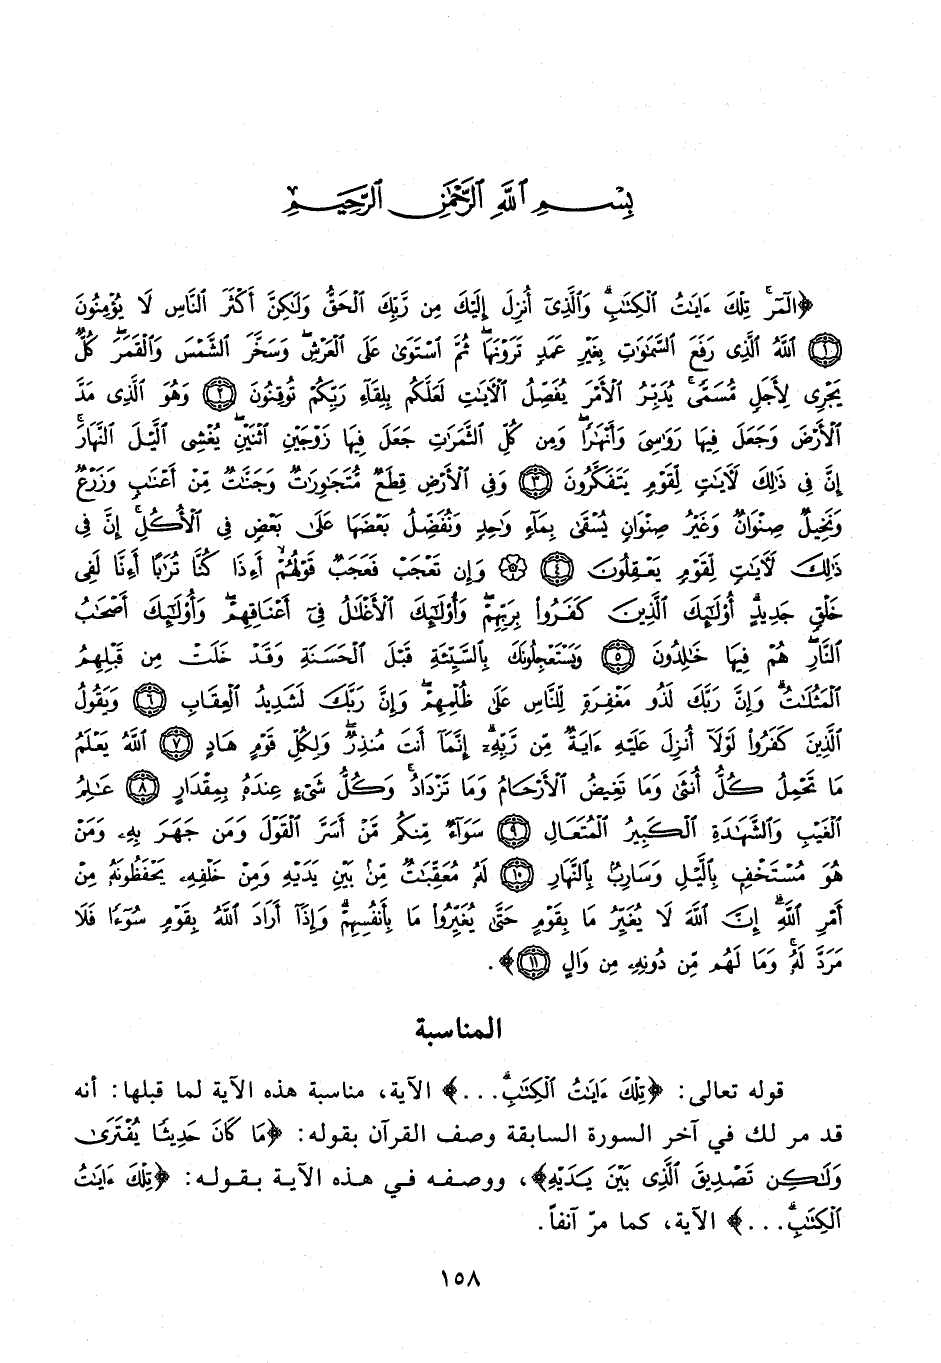 بِسْمِ ٱللَّهِ ٱلرَّحْمَٰنِ ٱلرَّحِيمِ
﴿الٓمٓرۚ تِلْكَ ءَايَٰتُ ٱلْكِتَٰبِۗ وَٱلَّذِىٓ أُنزِلَ إِلَيْكَ مِن رَّبِّكَ ٱلْحَقُّ وَلَٰكِنَّ أَكْثَرَ ٱلنَّاسِ لَا يُؤْمِنُونَ
١ ٱللَّهُ ٱلَّذِى رَفَعَ ٱلسَّمَٰوَٰتِ بِغَيْرِ عَمَدٍ تَرَوْنَهَاۖ ثُمَّ ٱسْتَوَىٰ عَلَى ٱلْعَرْشِۖ وَسَخَّرَ ٱلشَّمْسَ وَٱلْقَمَرَۖ كُلٌّ
يَجْرِى لِأَجَلٍ مُّسَمًّىۚ يُدَبِّرُ ٱلْأَمْرَ يُفَصِّلُ ٱلْءَايَٰتِ لَعَلَّكُم بِلِقَآءِ رَبِّكُمْ تُوقِنُونَ ٢ وَهُوَ ٱلَّذِى مَدَّ
ٱلْأَرْضَ وَجَعَلَ فِيهَا رَوَٰسِىَ وَأَنْهَٰرًاۖ وَمِن كُلِّ ٱلثَّمَرَٰتِ جَعَلَ فِيهَا زَوْجَيْنِ ٱثْنَيْنِۖ يُغْشِى ٱلَّيْلَ ٱلنَّهَارَۚ
إِنَّ فِى ذَٰلِكَ لَءَايَٰتٍ لِّقَوْمٍ يَتَفَكَّرُونَ ٣ وَفِى ٱلْأَرْضِ قِطَعٌ مُّتَجَٰوِرَٰتٌ وَجَنَّٰتٌ مِّنْ أَعْنَٰبٍ وَزَرْعٌ
وَنَخِيلٌ صِنْوَانٌ وَغَيْرُ صِنْوَانٍ يُسْقَىٰ بِمَآءٍ وَٰحِدٍ وَنُفَضِّلُ بَعْضَهَا عَلَىٰ بَعْضٍ فِى ٱلْأُكُلِۚ إِنَّ فِى
ذَٰلِكَ لَءَايَٰتٍ لِّقَوْمٍ يَعْقِلُونَ ٤ ۞ وَإِن تَعْجَبْ فَعَجَبٌ قَوْلُهُمْ أَءِذَا كُنَّا تُرَٰبًا أَءِنَّا لَفِى
خَلْقٍ جَدِيدٍۗ أُو۟لَٰٓئِكَ ٱلَّذِينَ كَفَرُوا۟ بِرَبِّهِمْۖ وَأُو۟لَٰٓئِكَ ٱلْأَغْلَٰلُ فِىٓ أَعْنَاقِهِمْۖ وَأُو۟لَٰٓئِكَ أَصْحَٰبُ
ٱلنَّارِۖ هُمْ فِيهَا خَٰلِدُونَ ٥ وَيَسْتَعْجِلُونَكَ بِٱلسَّيِّئَةِ قَبْلَ ٱلْحَسَنَةِ وَقَدْ خَلَتْ مِن قَبْلِهِمُ
ٱلْمَثُلَٰتُۗ وَإِنَّ رَبَّكَ لَذُو مَغْفِرَةٍ لِّلنَّاسِ عَلَىٰ ظُلْمِهِمْۖ وَإِنَّ رَبَّكَ لَشَدِيدُ ٱلْعِقَابِ ٦ وَيَقُولُ
ٱلَّذِينَ كَفَرُوا۟ لَوْلَآ أُنزِلَ عَلَيْهِ ءَايَةٌ مِّن رَّبِّهِۦٓۗ إِنَّمَآ أَنتَ مُنذِرٌۖ وَلِكُلِّ قَوْمٍ هَادٍ ٧ ٱللَّهُ يَعْلَمُ
مَا تَحْمِلُ كُلُّ أُنثَىٰ وَمَا تَغِيضُ ٱلْأَرْحَامُ وَمَا تَزْدَادُۖ وَكُلُّ شَىْءٍ عِندَهُۥ بِمِقْدَارٍ ٨ عَٰلِمُ
ٱلْغَيْبِ وَٱلشَّهَٰدَةِ ٱلْكَبِيرُ ٱلْمُتَعَالِ ٩ سَوَآءٌ مِّنكُم مَّنْ أَسَرَّ ٱلْقَوْلَ وَمَن جَهَرَ بِهِۦ وَمَنْ
هُوَ مُسْتَخْفٍۭ بِٱلَّيْلِ وَسَارِبٌۢ بِٱلنَّهَارِ ١٠ لَهُۥ مُعَقِّبَٰتٌ مِّنۢ بَيْنِ يَدَيْهِ وَمِنْ خَلْفِهِۦ يَحْفَظُونَهُۥ مِنْ
أَمْرِ ٱللَّهِۗ إِنَّ ٱللَّهَ لَا يُغَيِّرُ مَا بِقَوْمٍ حَتَّىٰ يُغَيِّرُوا۟ مَا بِأَنفُسِهِمْۗ وَإِذَآ أَرَادَ ٱللَّهُ بِقَوْمٍ سُوٓءًا فَلَا
مَرَدَّ لَهُۥۚ وَمَا لَهُم مِّن دُونِهِۦ مِن وَالٍ ١١﴾.
المناسبة
قوله تعالى: ﴿تِلْكَ ءَايَٰتُ ٱلْكِتَٰبِۗ...﴾ الآية، مناسبة هذه الآية لما قبلها: أنه
قد مر لك في آخر السورة السابقة وصف القرآن بقوله: ﴿مَا كَانَ حَدِيثًا يُفْتَرَىٰ
وَلَٰكِن تَصْدِيقَ ٱلَّذِى بَيْنَ يَدَيْهِ﴾، ووصفه في هذه الآية بقوله: ﴿تِلْكَ ءَايَٰتُ
ٱلْكِتَٰبِۗ...﴾ الآية، كما مرّ آنفاً.
١٥٨